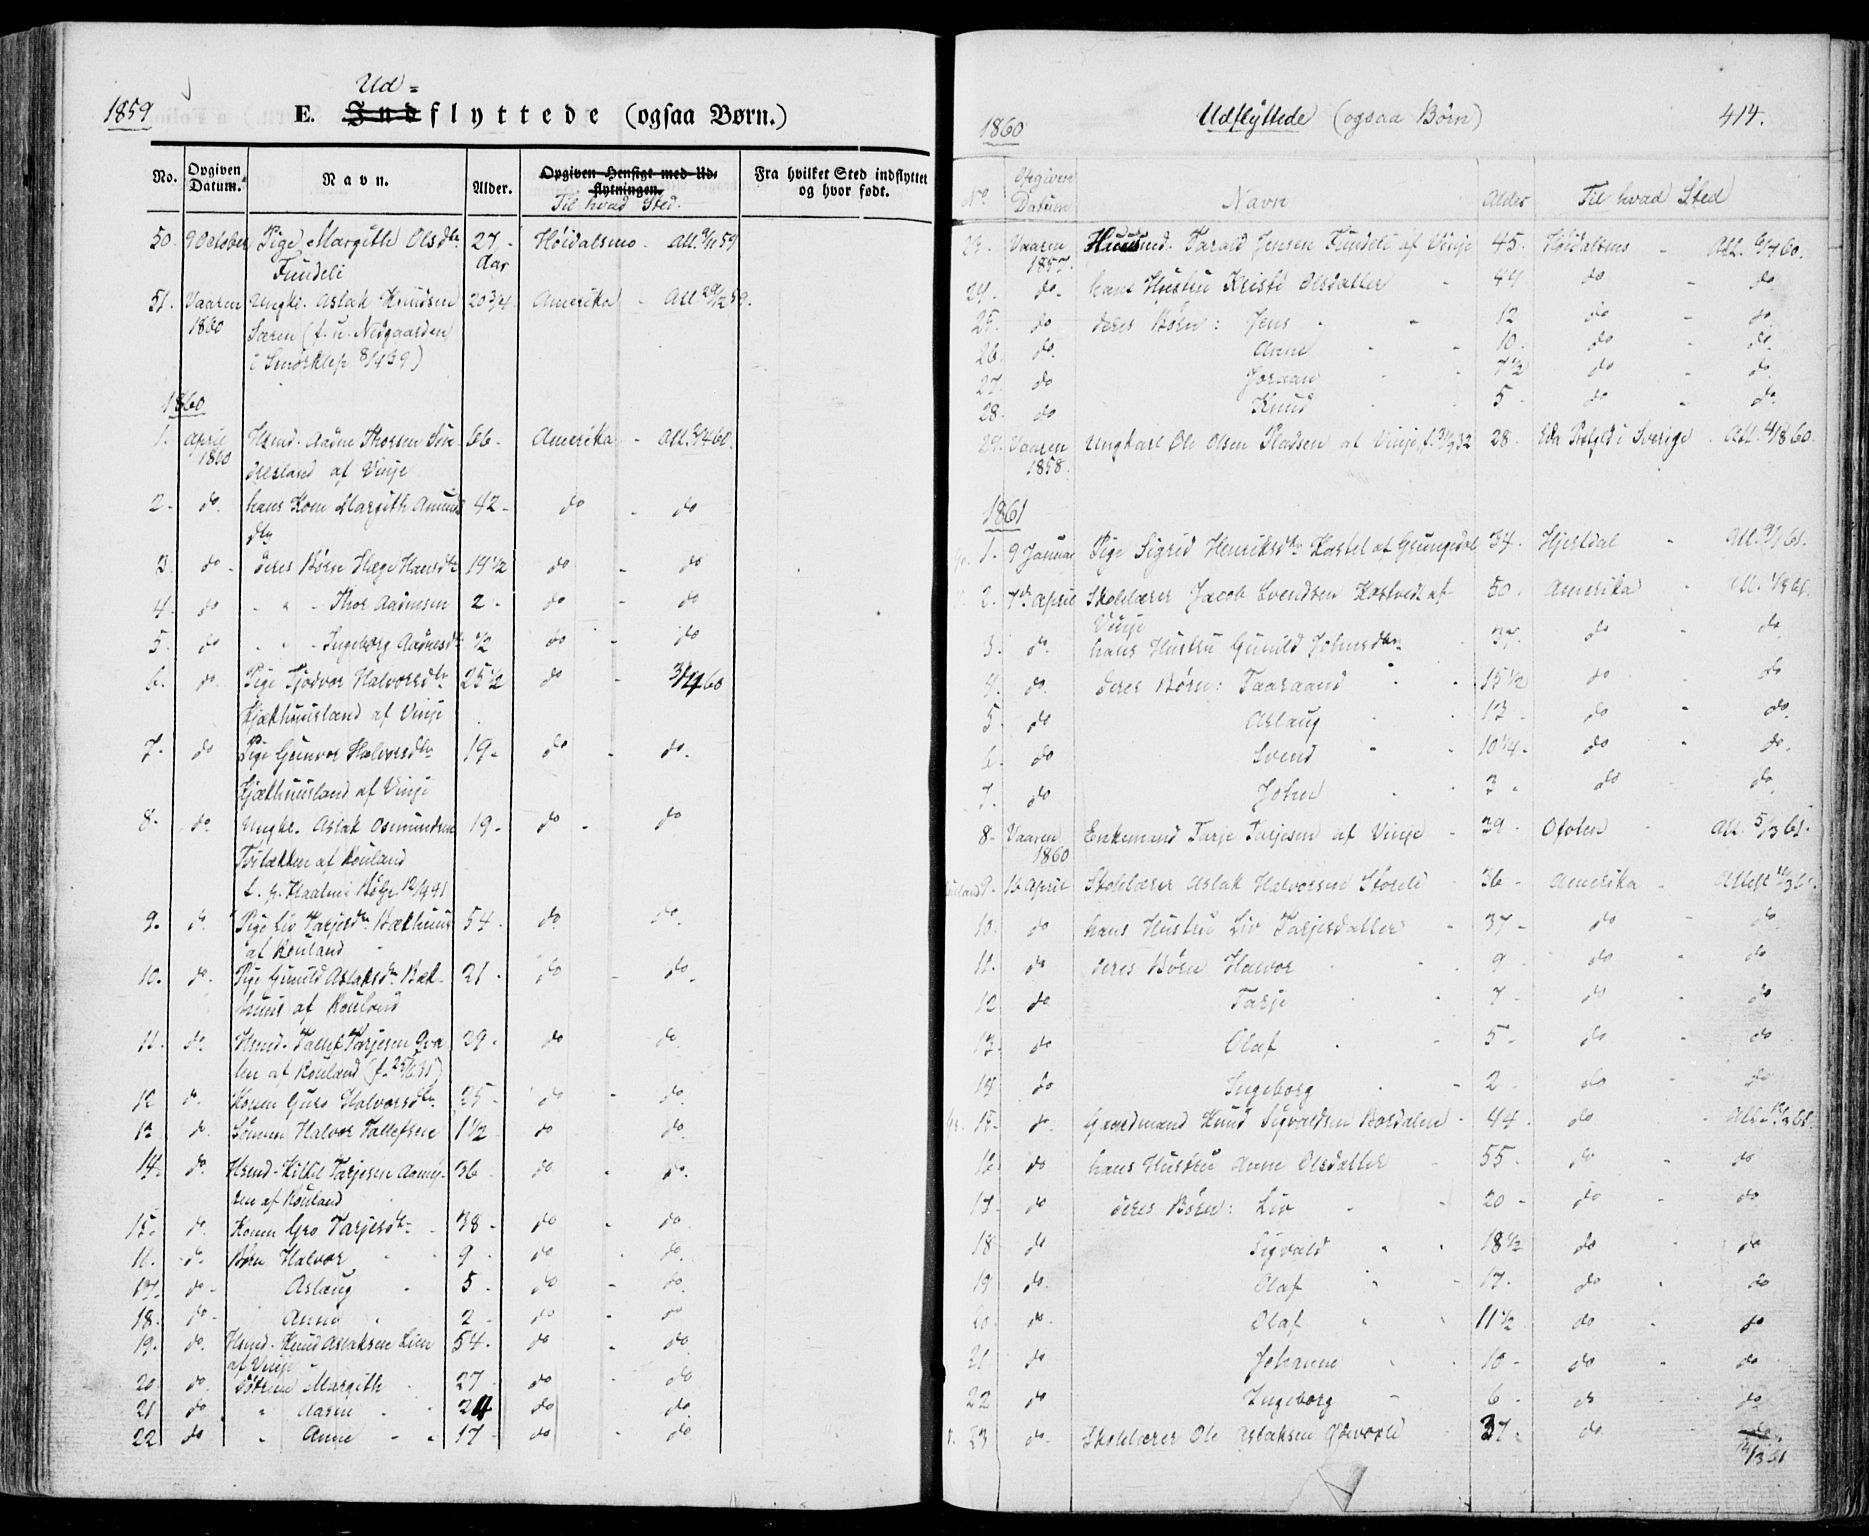 1859
Ud=
E. Indflyttede (ogsaa Børn.)
No. Opgiven Datum. Navn. Alder. Opgiven Hensigt med Udflytningen. Fra hvilket Sted indflyttet og hvor født.
Til hvad Sted.
50. 9 October Pige Margith Olsdtr 27 Høidalsmo - Att. 9/11 59
Fundeli Aar
51. Vaaren Ungk. Aslak Knudsen 20 3/4 Amerika - Att 59.
1860 (f. u. Nedgaarden
i Smørklep 8/4 39)
1860
1. April Hsmd. Aadne Thorsen 66 - Amerika - Att. 60.
1860 af Vinje
2 - do. hans Kone Margith Amunds 42 - do - do
dtr
3 do - deres Børn Hæge Hansdtr 14 1/2 do - do
4 - do - " - Thor Aadnesen 2 - do - do
5. do " " - Ingebørg Aadnesdtr 1/2 do - do
6. do. Pige Tjodvor Halvorsdtr 25 1/2 do - 3/4 60
Kjækhuusland af Vinje
7. do Pige Gunvor Halvorsdtr 19 - do - do.
Kjækhuusland af Vinje
8. do. Ungk. Aslak Osmundsen 19 - do - do
af Rouland
9. do Pige Liv Tarjesdtr. Bækhuus 54 - do. do.
af Rouland
10. do. Pige Gunild Aslaksdtr. Bæk- 21 - do - do.
huus af Rouland
11. do. Hsmd. Tallef Tarjesen 29 - do do.
af Rouland
12 do. Konen Guro Halvorsdtr. 25 - do - do.
13 do. Sønnen Halvor Tallefsen 1 1/2 do do.
14. do. Hsmd. Kittil Tarjesen 36 do do.
af Rouland
15. do. Konen Gro Tarjesdtr. - 38 - do - do.
16. do. Børn Halvor 9 - do do.
17. do - Aslaug 5 - do - do
18. do - Anne 2 - do - do
19. do. Hsmd. Knud Aslaksen Lien 54 - do - do
af Vinje
20 do. Døtrene Margith 27 - do - do
21 do " Aasne - 24 do do.
22 do " Anne - " 17 - do - do
1860
Udflyttede (ogsaa Børn)
414.
No Opgiven Datum Navn Alder Til hvad Sted
23. Vaaren Huusmd. Tarald Jensen Fundeli af Vinje 45. Høidalsmo - Att. 6/4 60.
1857.
24. do - hans Hustru Kristi Olsdatter 44 do - do
25. do deres Børn: Jens - " 12 do - do.
26. do. Anne - - 10. do - do.
27. do Joraan 7 1/2 do - do
28. do Knud 5 - do - do.
29. Vaaren Ungkarl Ole Olsen Pladsen af Vinje, f. 32 28. Eda Præstgjeld i Sverige - Att. 60.
1858.
1861
1. 9 Januar Pige Sigrid Henriksdtr Kastet af Grungedal 34. Hjertdal - Att. 9/1 61.
2. 7de April Skolelærer Jacob Svendsen Kostvedt af 50. Amerika - Att. 61.
Vinje
3. do. hans Hustru Gunild Johnsdtr - 37. do - do
4. do. deres Børn: Taaraand " - 15 1/2 do do
5. do Aslaug - 13 - do - do.
6. do Svend " 10 1/4 - do " do.
7. do John 3 - do do.
8 - Vaaren Enkemand Tarje Tarjesen af Vinje - 39 - Ofoten - Att. 5/3 61.
1860
Rouland 9 - 16 April Skolelærer Aslak Halvorsen 36 - Amerika - Attest 61.
10. do hans Hustru Liv Tarjesdatter - 37 - do - do.
11. do deres Børn Halvor - 9 - do do
12 do Tarje - 7 - do - do
13. do Olaf - 5 - do - do
14 do Ingeborg - 2 - do - do
15. do. Gaardmand Knud Sigvaldsen 44 - do - Att. 61.
16 do hans Hustru Anne Olsdatter - 55 - do - do
17 do deres Børn: Liv - 20 - do - do
18 do Sigvald " 18 1/2 do do
19 do. Olaf " 17. do do
20. do. Olaf " 11 1/2 do - do
21 do Johanne 10 - do - do
22 do Ingeborg - 6 - do - do
23 do. Skolelærer Ole Aslaksen 37 - do - do.
14/3 61